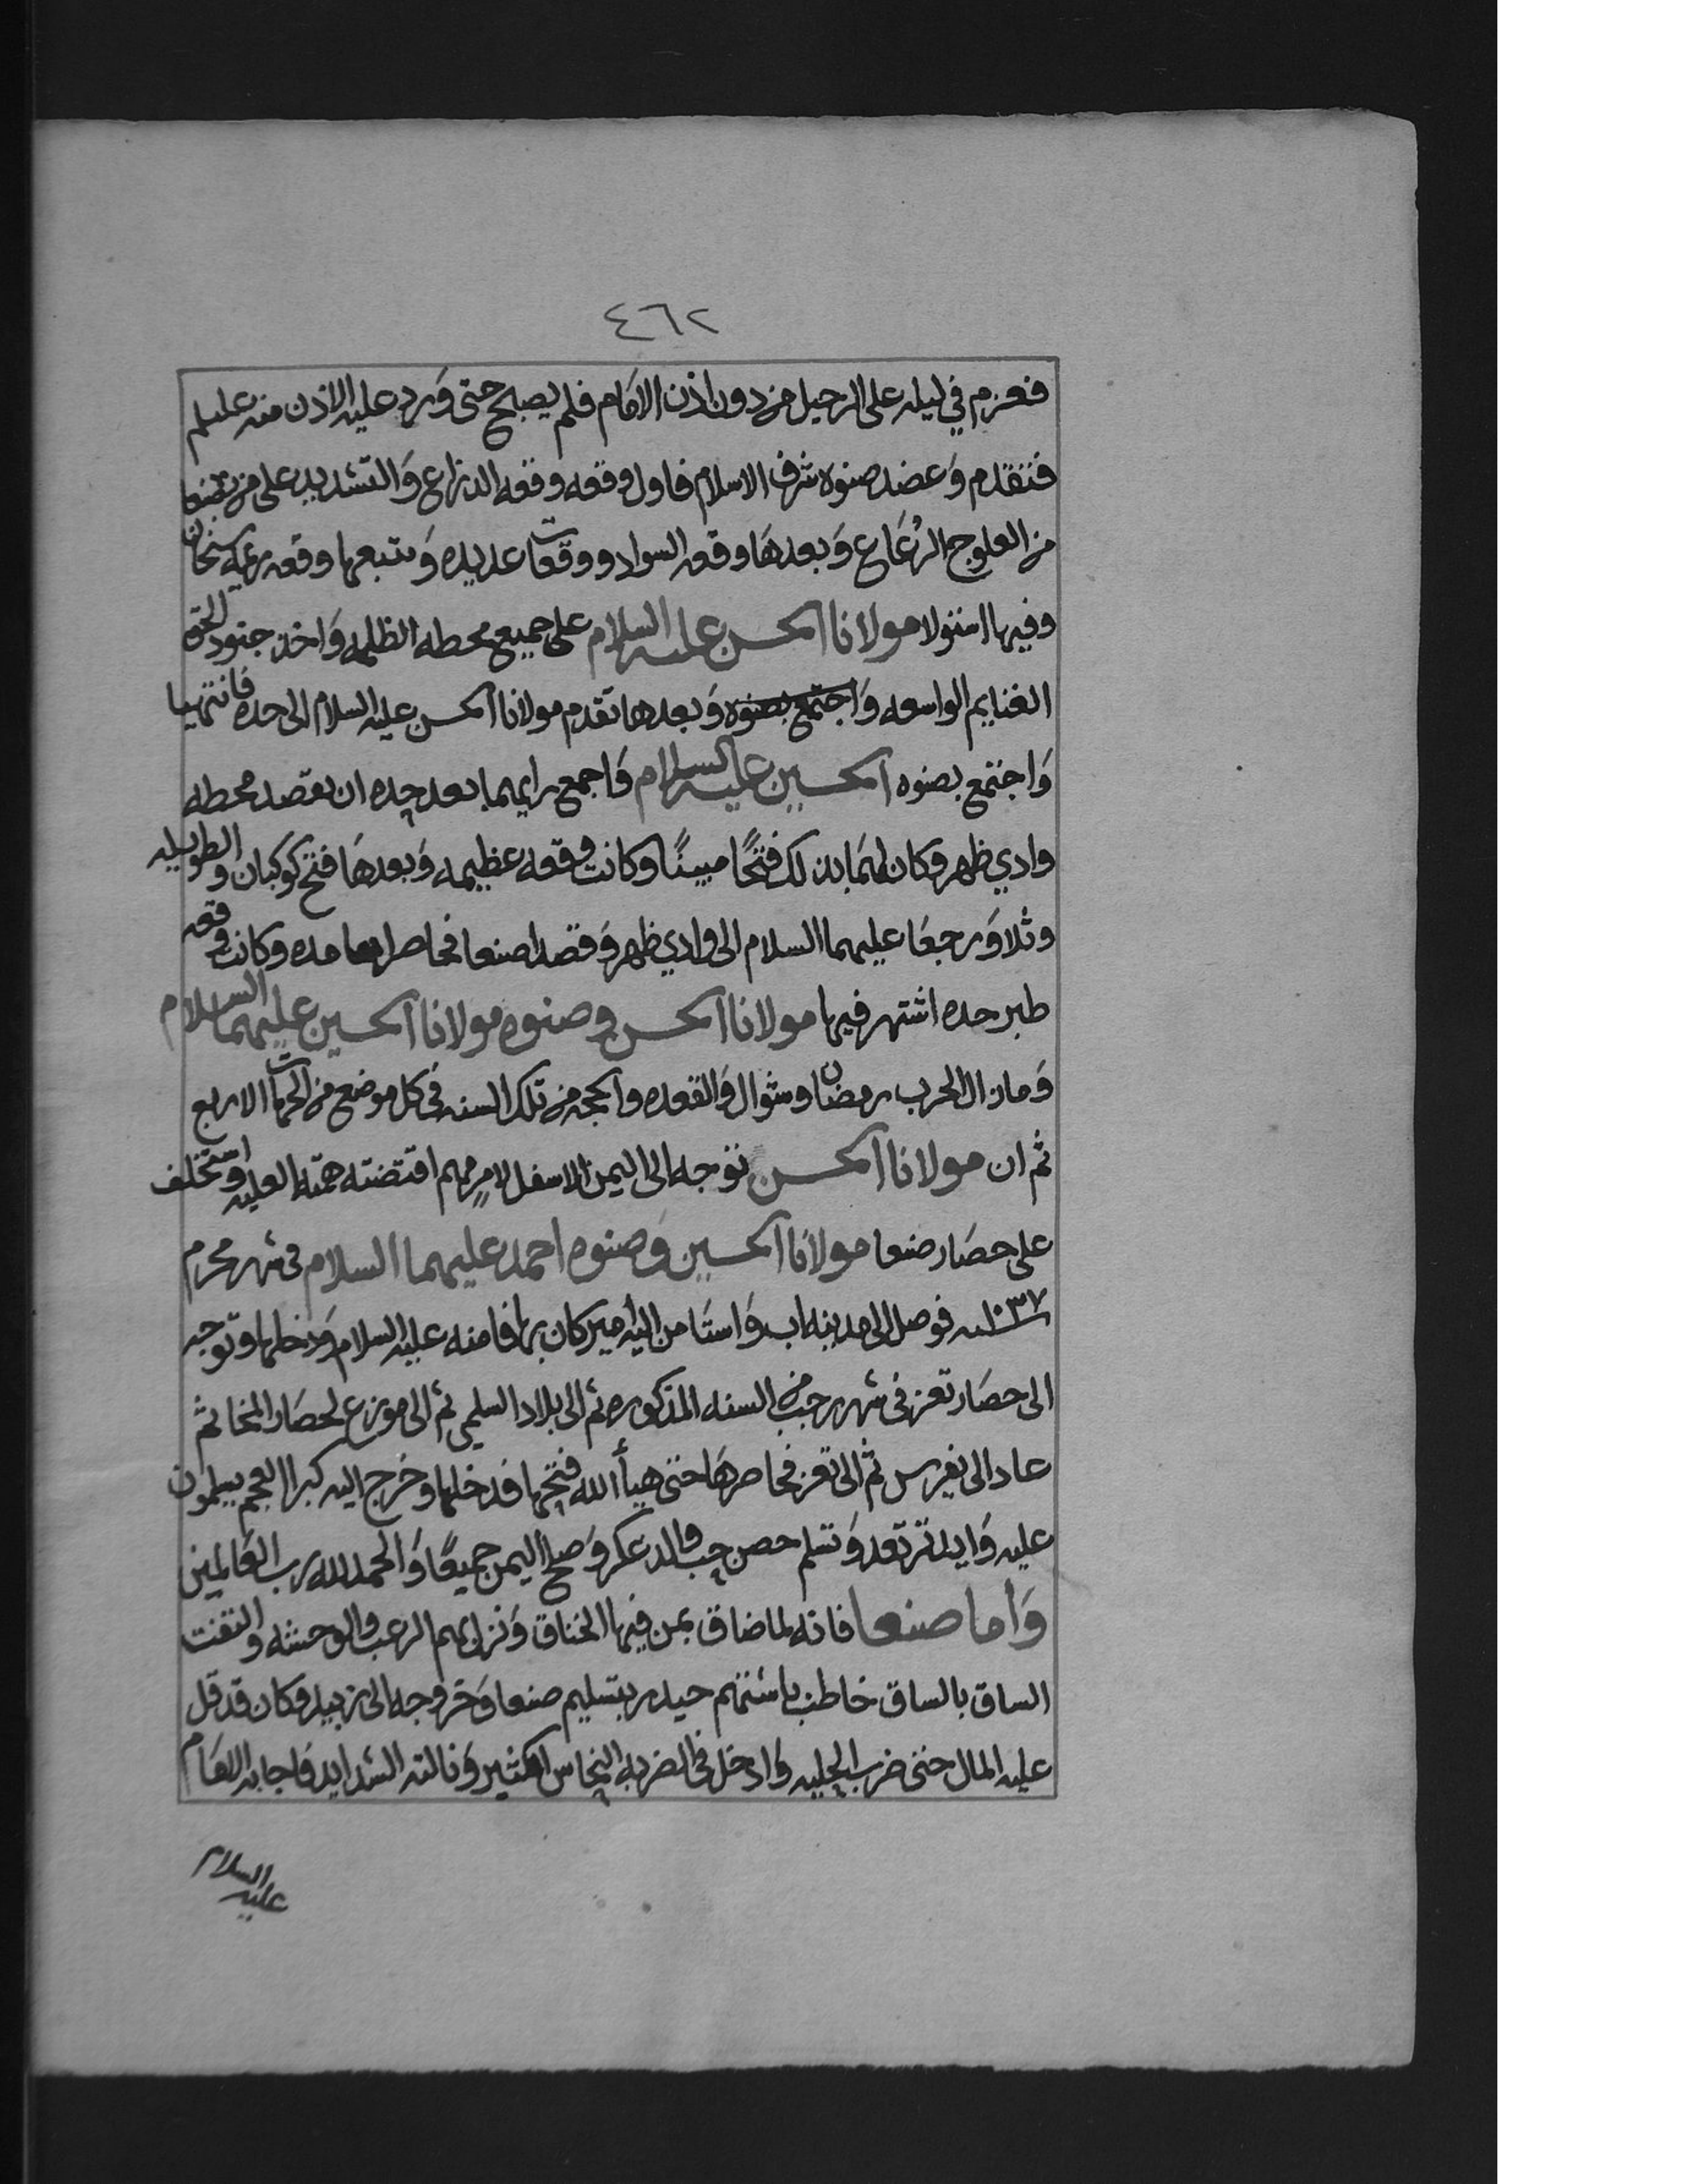 ٤٦٢
فعزم في ليله على الرحيل من دون اذن الامام فلم يصبح حتى ورد عليه الاذن منه عليلم
فتقدم وعضد صنوه شرف الاسلام فاول وقعه وقعه الدراع والتشديد على من بصنعا
من العلوج الرعاع وبعدها وقعه السواد ووقعات عديده ويتبعها وقعه ريمه سنحان
وفيها استولا مولانا الحسن عليه السلام على جميع محطه الظلمه واخذ جنود الحق
الغنايم الواسعه واجتمع بصنوه وبعدها تقدم مولانا الحسن عليه السلام الى حده فانتهيا
واجتمع بصنوه الحسين عليه السلام واجمع رايهما بعد حده ان يقصد محطه
وادي ظهر وكان لهما بذلك فتحًا مبينًا وكانت وقعه عظيمه وبعدها فتح كوكبان والطويله
وثلا ورجعا عليهما السلام الى وادي ظهر وقصدا صنعا فحاصراها مده وكانت وقعه
طبر حده اشتهر فيها مولانا الحسن وصنوه مولانا الحسين عليهما السلام
وما زال الحرب رمضان وشوال والقعده والحجه من تلك السنه في كل موضع من الجهات الاربع
ثم ان مولانا الحسن توجه الى اليمن الاسفل لامرٍ مهم اقتضته همته العليه واستخلف
على حصار صنعا مولانا الحسين وصنوه احمد عليهما السلام في شهر محرم
١٠٣٧سنه فوصل الى مدينه اب واستامن اليه امير كان بها فامنه عليه السلام ودخلها وتوجه
الى حصار تعز في شهر رجب من السنه المذكوره ثم الى بلاد السلمي ثم الى موزع لحصار المخا ثم
عاد الى يفرس ثم الى تعز فحاصرها حتى هيأ الله فتحها فدخلها وخرج اليه كبرا العجم يسلمون
عليه وايديهم ترتعد وتسلم حصن حب والدعكر وصح اليمن جميعًا والحمد لله رب العالمين
وأما صنعا فانه لما ضاق بمن فيها الخناق ونزل بهم الرعب والوحشه والتفت
الساق بالساق خاطب باشتهم حيدر بتسليم صنعا وخروجه الى زبيد وكان قد قل
عليه المال حتى ضرب الحليه وادخل في الضربه النحاس الكثير ونالته الشدايد فاجابه الامام
عليه السلام